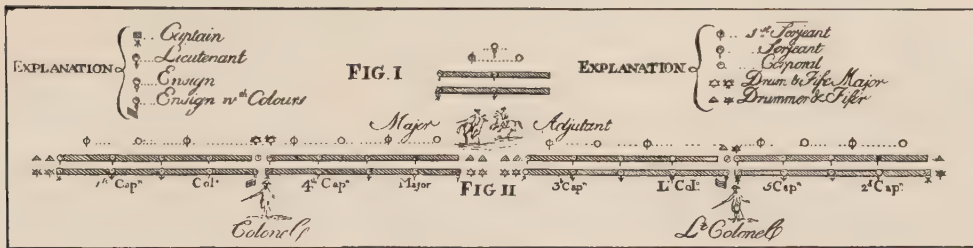 EXPLANATION
Captain
Lieutenant
Ensign
Ensign wth Colours
FIG. I
EXPLANATION
1st Serjeant
Serjeant
Corporal
Drum & Fife Major
Drummer & Fifer
Major Adjutant
1st Capn Col. 4th Capn Major FIG. II 3d Capn Lt Col. 5 Capn 2d Capn
Colonel Lt Colonel